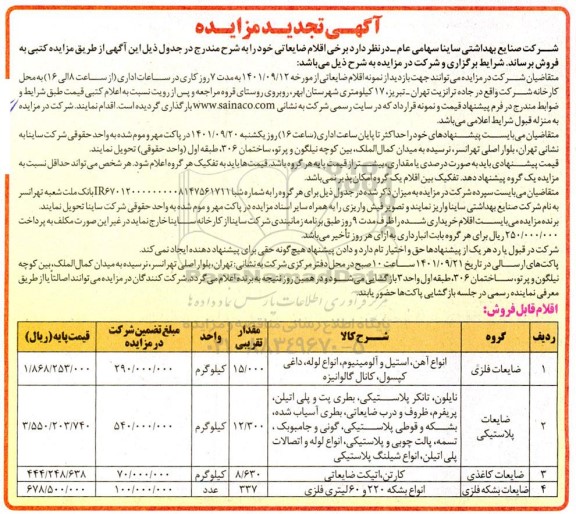 آگهی تجدید مزایده
شرکت صنایع بهداشتی ساینا سهامی عام ـ در نظر دارد برخی اقلام ضایعاتی خود را به شرح مندرج در جدول ذیل این آگهی از طریق مزایده کتبی به
فروش برساند. شرایط برگزاری و شرکت در مزایده به شرح ذیل می‌باشد:
متقاضیان شرکت در مزایده می‌توانند جهت بازدید از نمونه اقلام ضایعاتی از مورخه ۱۴۰۱/۰۹/۱۲ به مدت ۷ روز کاری در ساعات اداری (از ساعت ۸ الی ۱۶) به محل
کارخانه شرکت واقع در جاده ترانزیت تهران ـ تبریز، ۱۷۰ کیلومتری شهرستان ابهر، روبروی روستای قروه مراجعه و پس از رویت نسبت به اعلام کتبی قیمت طبق شرایط و
ضوابط مندرج در فرم پیشنهاد قیمت و نمونه قرارداد که در سایت رسمی شرکت به نشانی www.sainaco.com بارگذاری گردیده است، اقدام نمایند. شرکت در مزایده
به منزله قبول شرایط اعلامی می‌باشد.
متقاضیان می‌بایست پیشنهادهای خود را حداکثر تا پایان ساعت اداری (ساعت ۱۶) روز یکشنبه ۱۴۰۱/۰۹/۲۰ در پاکت مهر و موم شده به واحد حقوقی شرکت ساینا به
نشانی تهران، بلوار اصلی تهرانسر، نرسیده به میدان کمال‌الملک، بین کوچه نیلگون و پرتو، ساختمان ۳۰۶، طبقه اول (واحد حقوقی) تحویل نمایند.
قیمت پیشنهادی باید به صورت درصدی یا مقداری بیشتر از قیمت پایه هر گروه باشد. قیمت‌ها باید به تفکیک هر گروه اعلام شود. هر شخص می‌تواند حداقل نسبت به
مزایده یک گروه پیشنهاد دهد. تفکیک بین اقلام یک گروه امکان پذیر نمی‌باشد.
متقاضیان می‌بایست سپرده شرکت در مزایده به میزان ذکر شده در جدول ذیل برای هر گروه را به شماره شبا بانک ملت شعبه تهرانسر
به نام شرکت صنایع بهداشتی ساینا واریز نمایند و تصویر فیش واریزی را به همراه سایر اسناد مزایده در پاکت مهر و موم شده به واحد حقوقی شرکت ساینا تحویل نمایند.
برنده مزایده می‌بایست اقلام خریداری شده را ظرف مدت ۹ روز طبق برنامه زمانبندی شرکت ساینا از کارخانه ساینا خارج نماید در غیر این صورت مکلف به پرداخت
۲۵۰/۰۰۰/۰۰۰ ریال برای هر گروه بابت انبارداری به ازای هر روز تأخیر می‌باشد.
شرکت در قبول یا رد هر یک از پیشنهادها حق و اختیار تام دارد و دادن پیشنهاد هیچگونه حقی برای پیشنهاد دهنده ایجاد نمی کند.
پاکت‌های ارسالی در تاریخ ۱۴۰۱/۰۹/۲۱ ساعت ۱۰ صبح در محل دفتر مرکزی شرکت به نشانی: تهران، بلوار اصلی تهرانسر، نرسیده به میدان کمال‌الملک، بین کوچه
نیلگون و پرتو، ساختمان ۳۰۶، طبقه اول واحد ۳ بازگشایی می‌شود و در همین روز نتیجه به برنده اعلام می‌گردد. شرکت کنندگان در مزایده می‌توانند اصالتاً یا از طریق
معرفی نماینده رسمی در جلسه بازگشایی پاکت‌ها حضور یابند.
اقلام قابل فروش:
ردیف گروه شرح کالا مقدار تقریبی واحد مبلغ تضمین شرکت در مزایده قیمت پایه (ریال)
۱ ضایعات فلزی انواع آهن، استیل و آلومینیوم، انواع لوله، داغی کپسول، کانال گالوانیزه ۱۵/۰۰۰ کیلوگرم ۲۹۰/۰۰۰/۰۰۰ ۱/۸۶۸/۲۵۳/۰۰۰
۲ ضایعات پلاستیکی نایلون، تانکر پلاستیکی، بطری پت و پلی اتیلن، پریفرم، ظروف و درب ضایعاتی، بطری آسیاب شده، بشکه و قوطی پلاستیکی، گونی و جامبوبگ، تسمه، پالت چوبی و پلاستیکی، انواع لوله و اتصالات پلی اتیلن، انواع شیلنگ پلاستیکی ۱۲/۳۰۰ کیلوگرم ۵۴۰/۰۰۰/۰۰۰ ۳/۵۵۰/۲۰۳/۷۴۰
۳ ضایعات کاغذی کارتن، اتیکت ضایعاتی ۸/۶۳۰ کیلوگرم ۷۰/۰۰۰/۰۰۰ ۴۴۴/۲۴۸/۶۳۸
۴ ضایعات بشکه فلزی انواع بشکه ۲۲۰ و ۶۰ لیتری فلزی ۳۳۷ عدد ۱۰۰/۰۰۰/۰۰۰ ۶۷۸/۵۰۰/۰۰۰